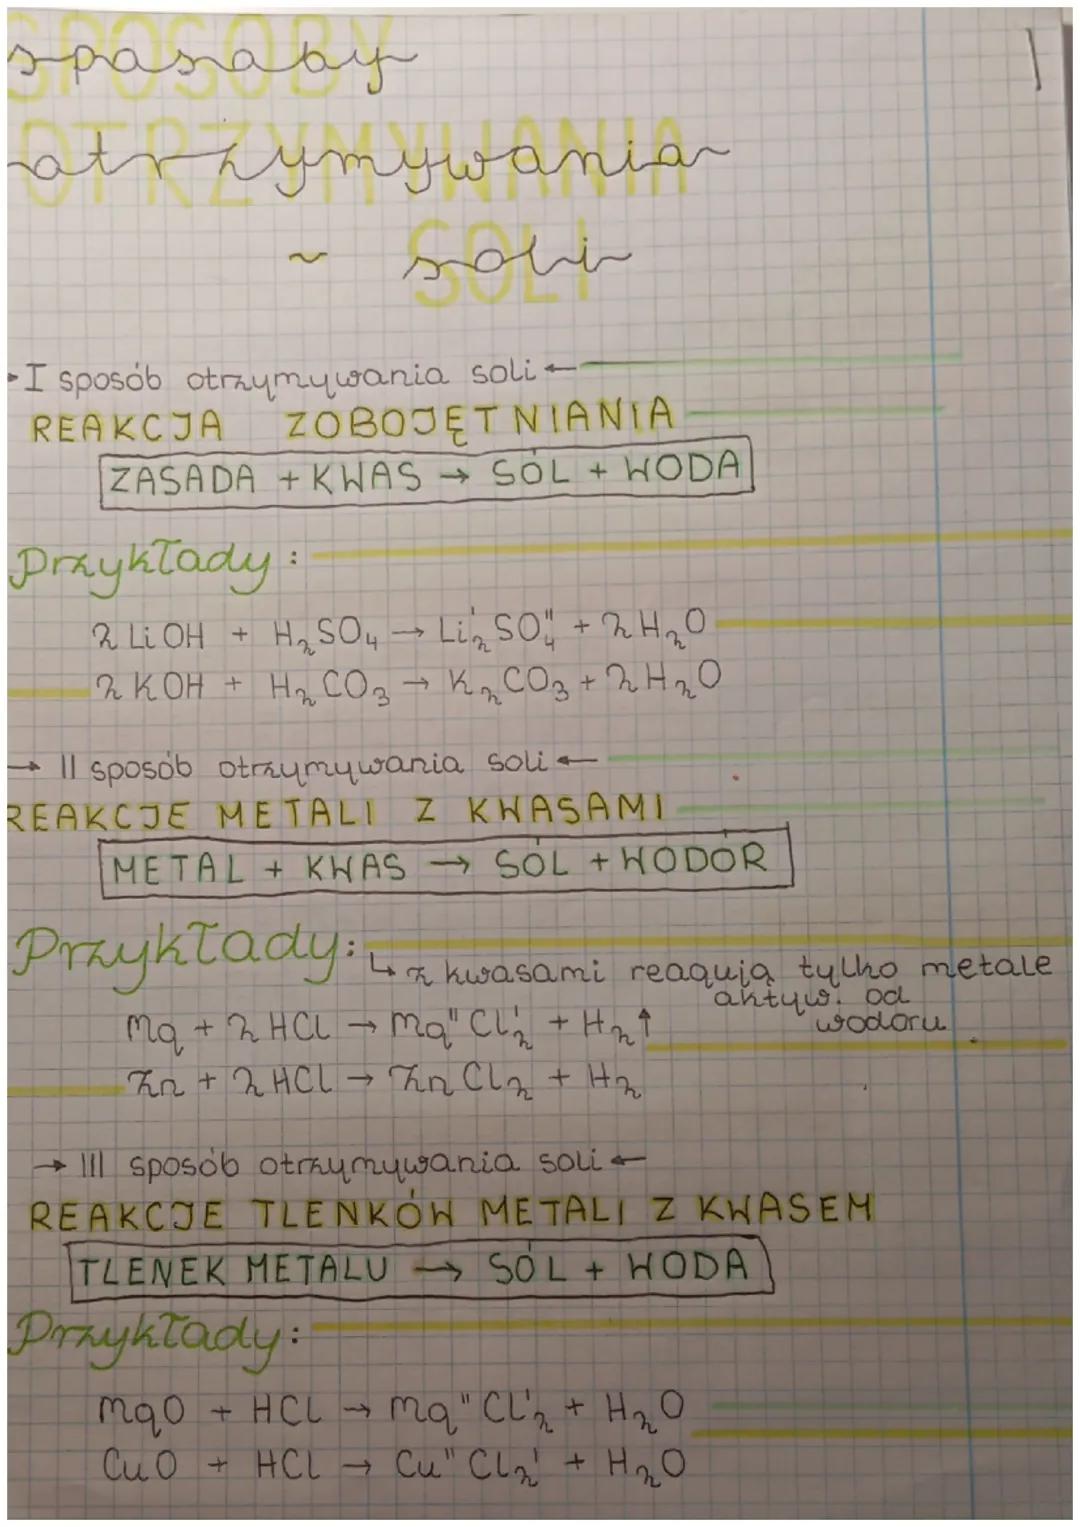 SPOSOBY
sposoby
OTRZYMYWANIA
otrzymywania
~ soli
SOLI
I sposób otrzymywania soli ←
REAKCJA ZOBOJĘTNIANIA
ZASADA + KWAS → SÓL + WODA
Przykłady:
2 LiOH + H₂SO₄ → Li₂ᴵSO₄ᴵᴵ + 2 H₂O
2 KOH + H₂CO₃ → K₂CO₃ + 2 H₂O
→ II sposób otrzymywania soli ←
REAKCJE METALI Z KWASAMI
METAL + KWAS → SÓL + WODÓR
Przykłady:
↳ z kwasami reagują tylko metale
aktyw. od
wodoru
Mg + 2 HCl → MgᴵᴵCl₂ᴵ + H₂↑
Zn + 2 HCl → ZnCl₂ + H₂
→ III sposób otrzymywania soli ←
REAKCJE TLENKÓW METALI Z KWASEM
TLENEK METALU → SÓL + WODA
Przykłady:
MgO + HCl → MgᴵᴵCl₂ᴵ + H₂O
CuO + HCl → CuᴵᴵCl₂ᴵ + H₂O